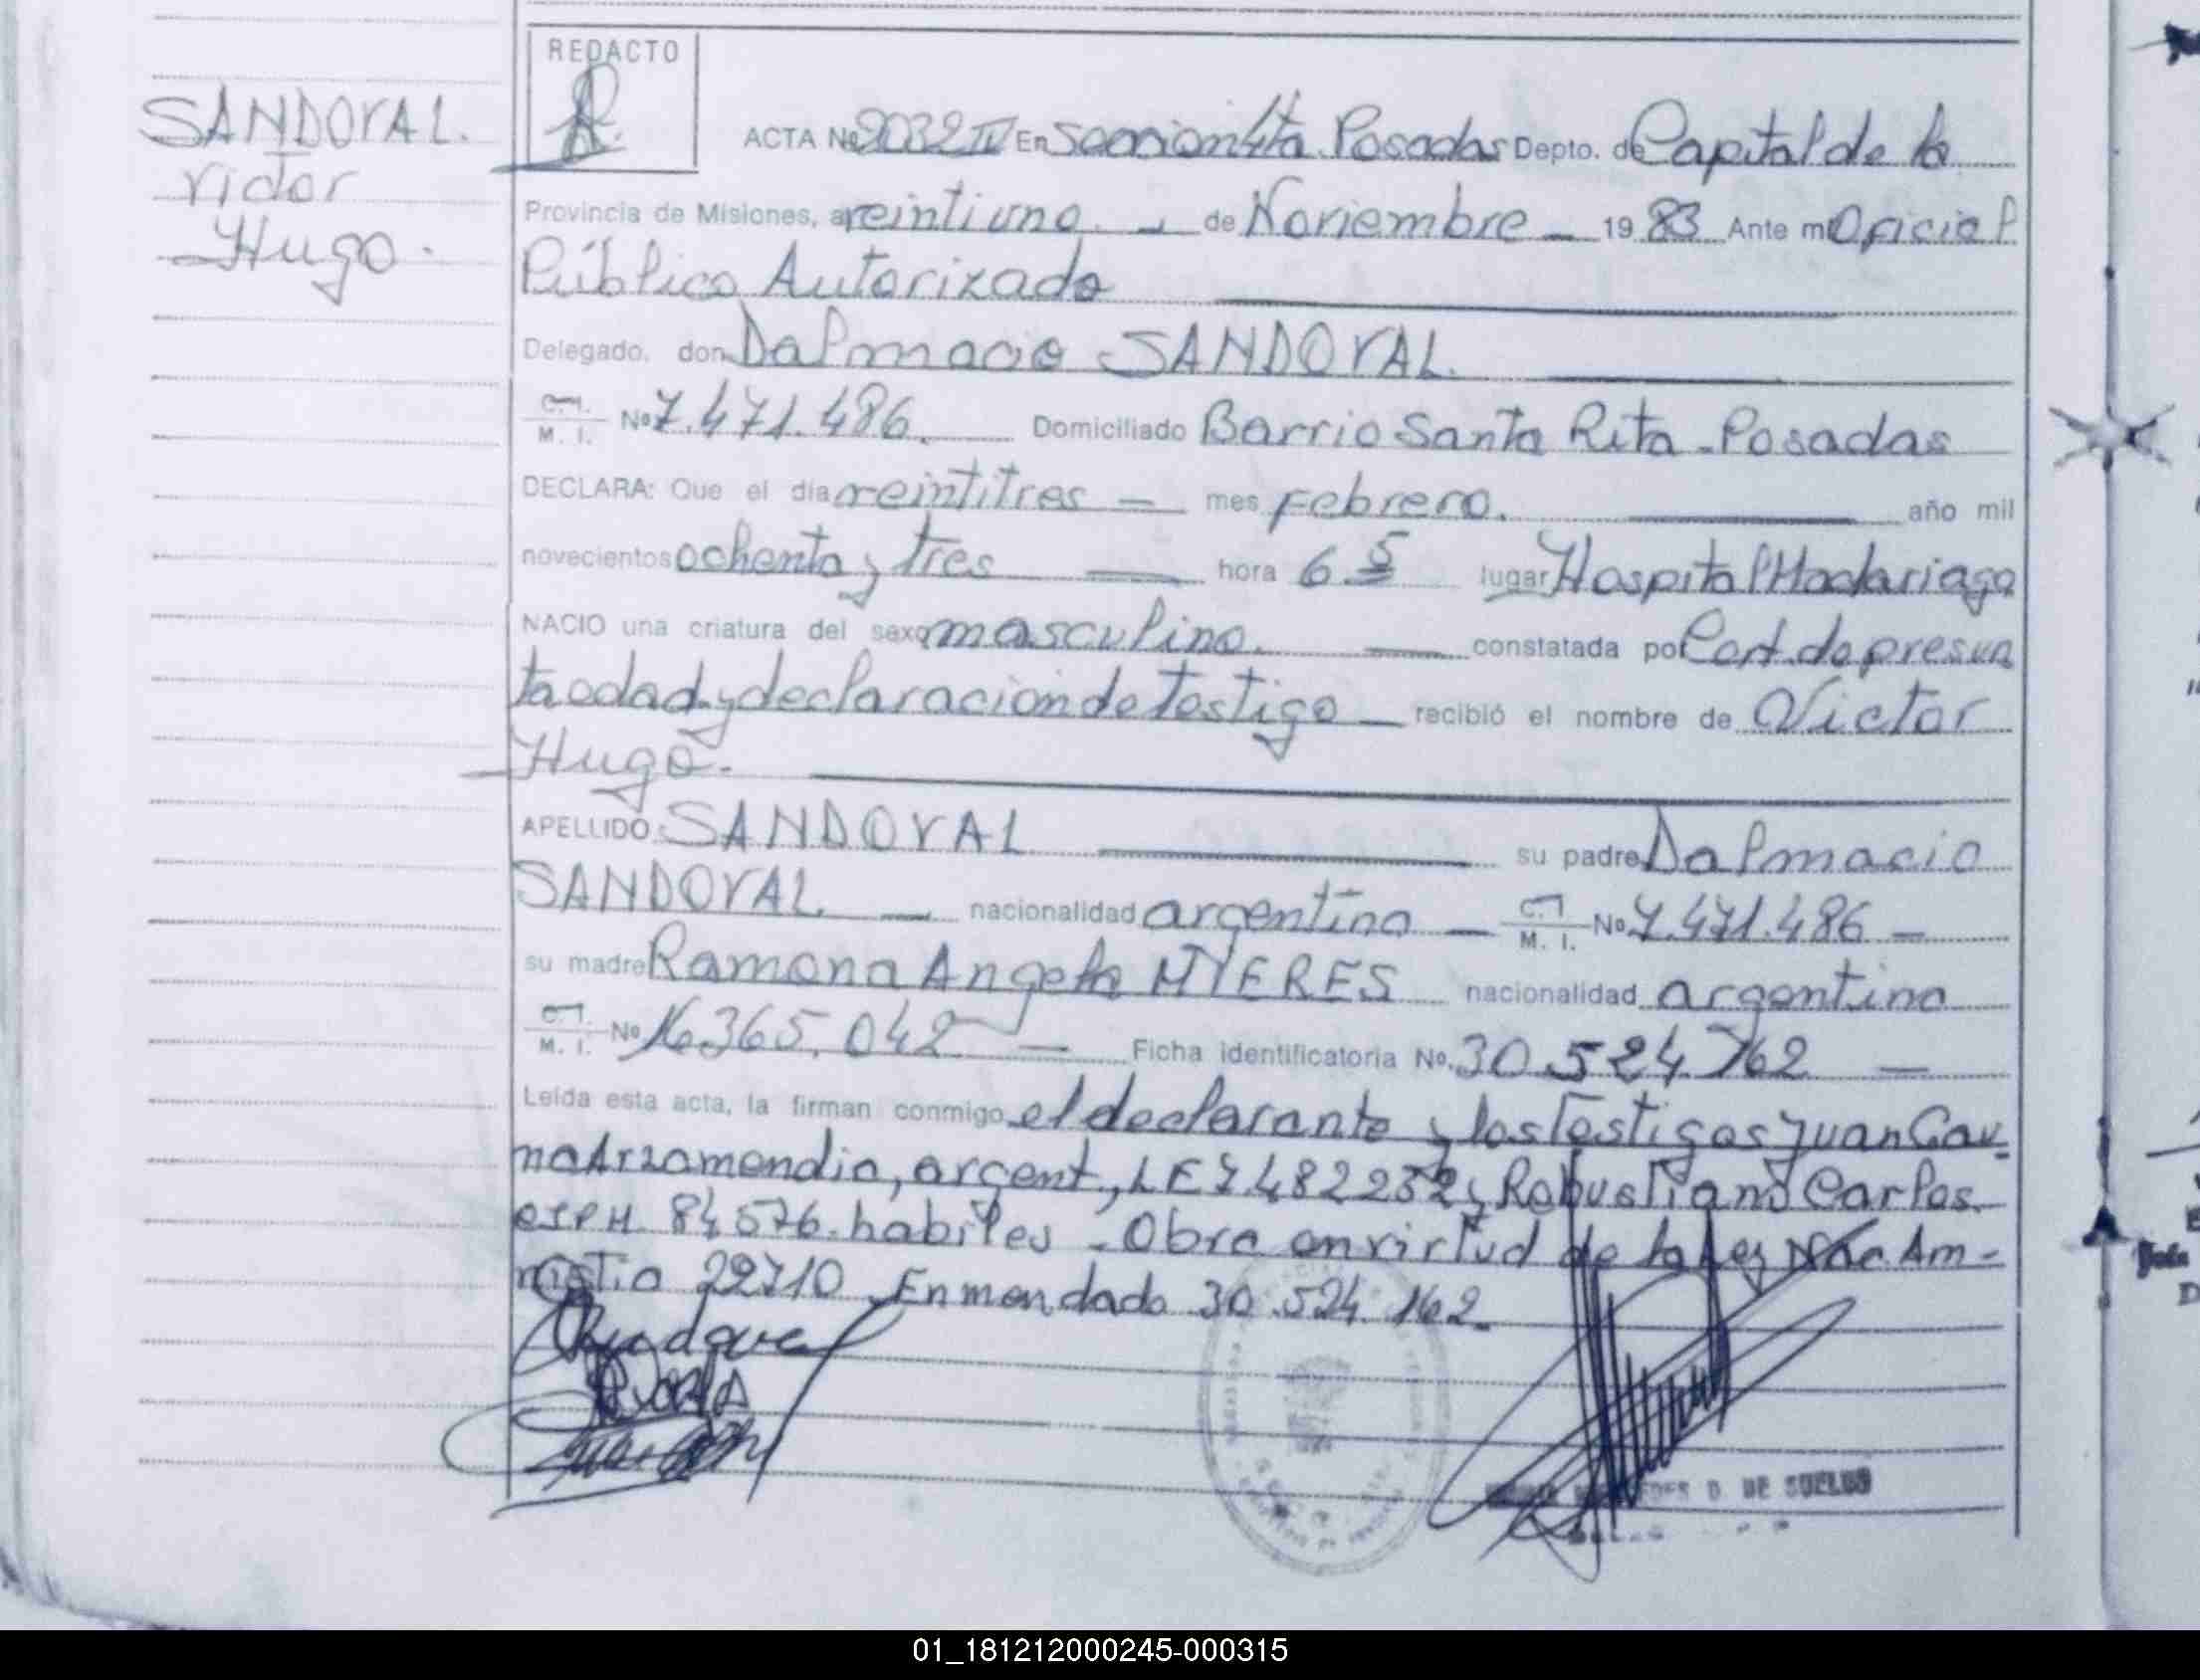 REDACTO
SANDOVAL.
Victor
Hugo.
ACTA Nº 2032 IV En Seccion 4ta. Posadas Depto. de Capital de la
Provincia de Misiones, a veintiuno. - de Noviembre - 19 83 Ante mi Oficial
Público Autorizado
Delegado, don Dalmacio SANDOVAL.
C.I. M. I. Nº 7.471.486. Domiciliado Barrio Santa Rita - Posadas
DECLARA: Que el día veintitres - mes Febrero. año mil
novecientos ochenta y tres hora 6 5 lugar Hospital Madariaga
NACIO una criatura del sexo masculino. constatada por Cert. de presun
ta edad y declaracion de testigo - recibió el nombre de Victor
Hugo.
APELLIDO: SANDOVAL su padre Dalmacio
SANDOVAL - nacionalidad argentina - C.I. M. I. Nº 7.471.486 -
su madre Ramona Angela MIERES nacionalidad argentina
C.I. M. I. Nº 16.365.042 - Ficha identificatoria Nº 30.524.162 -
Leída esta acta, la firman conmigo el declarante y los Testigos Juan Gau
na Arzamendia, argent., LE 7.482232 y Robustiano Carlos
CIPM 84576. habiles - Obra en virtud de la Ley Nac. Am-
nistia 22710. Enmendado 30.524.162.
D. DE SUELDO
01_181212000245-000315